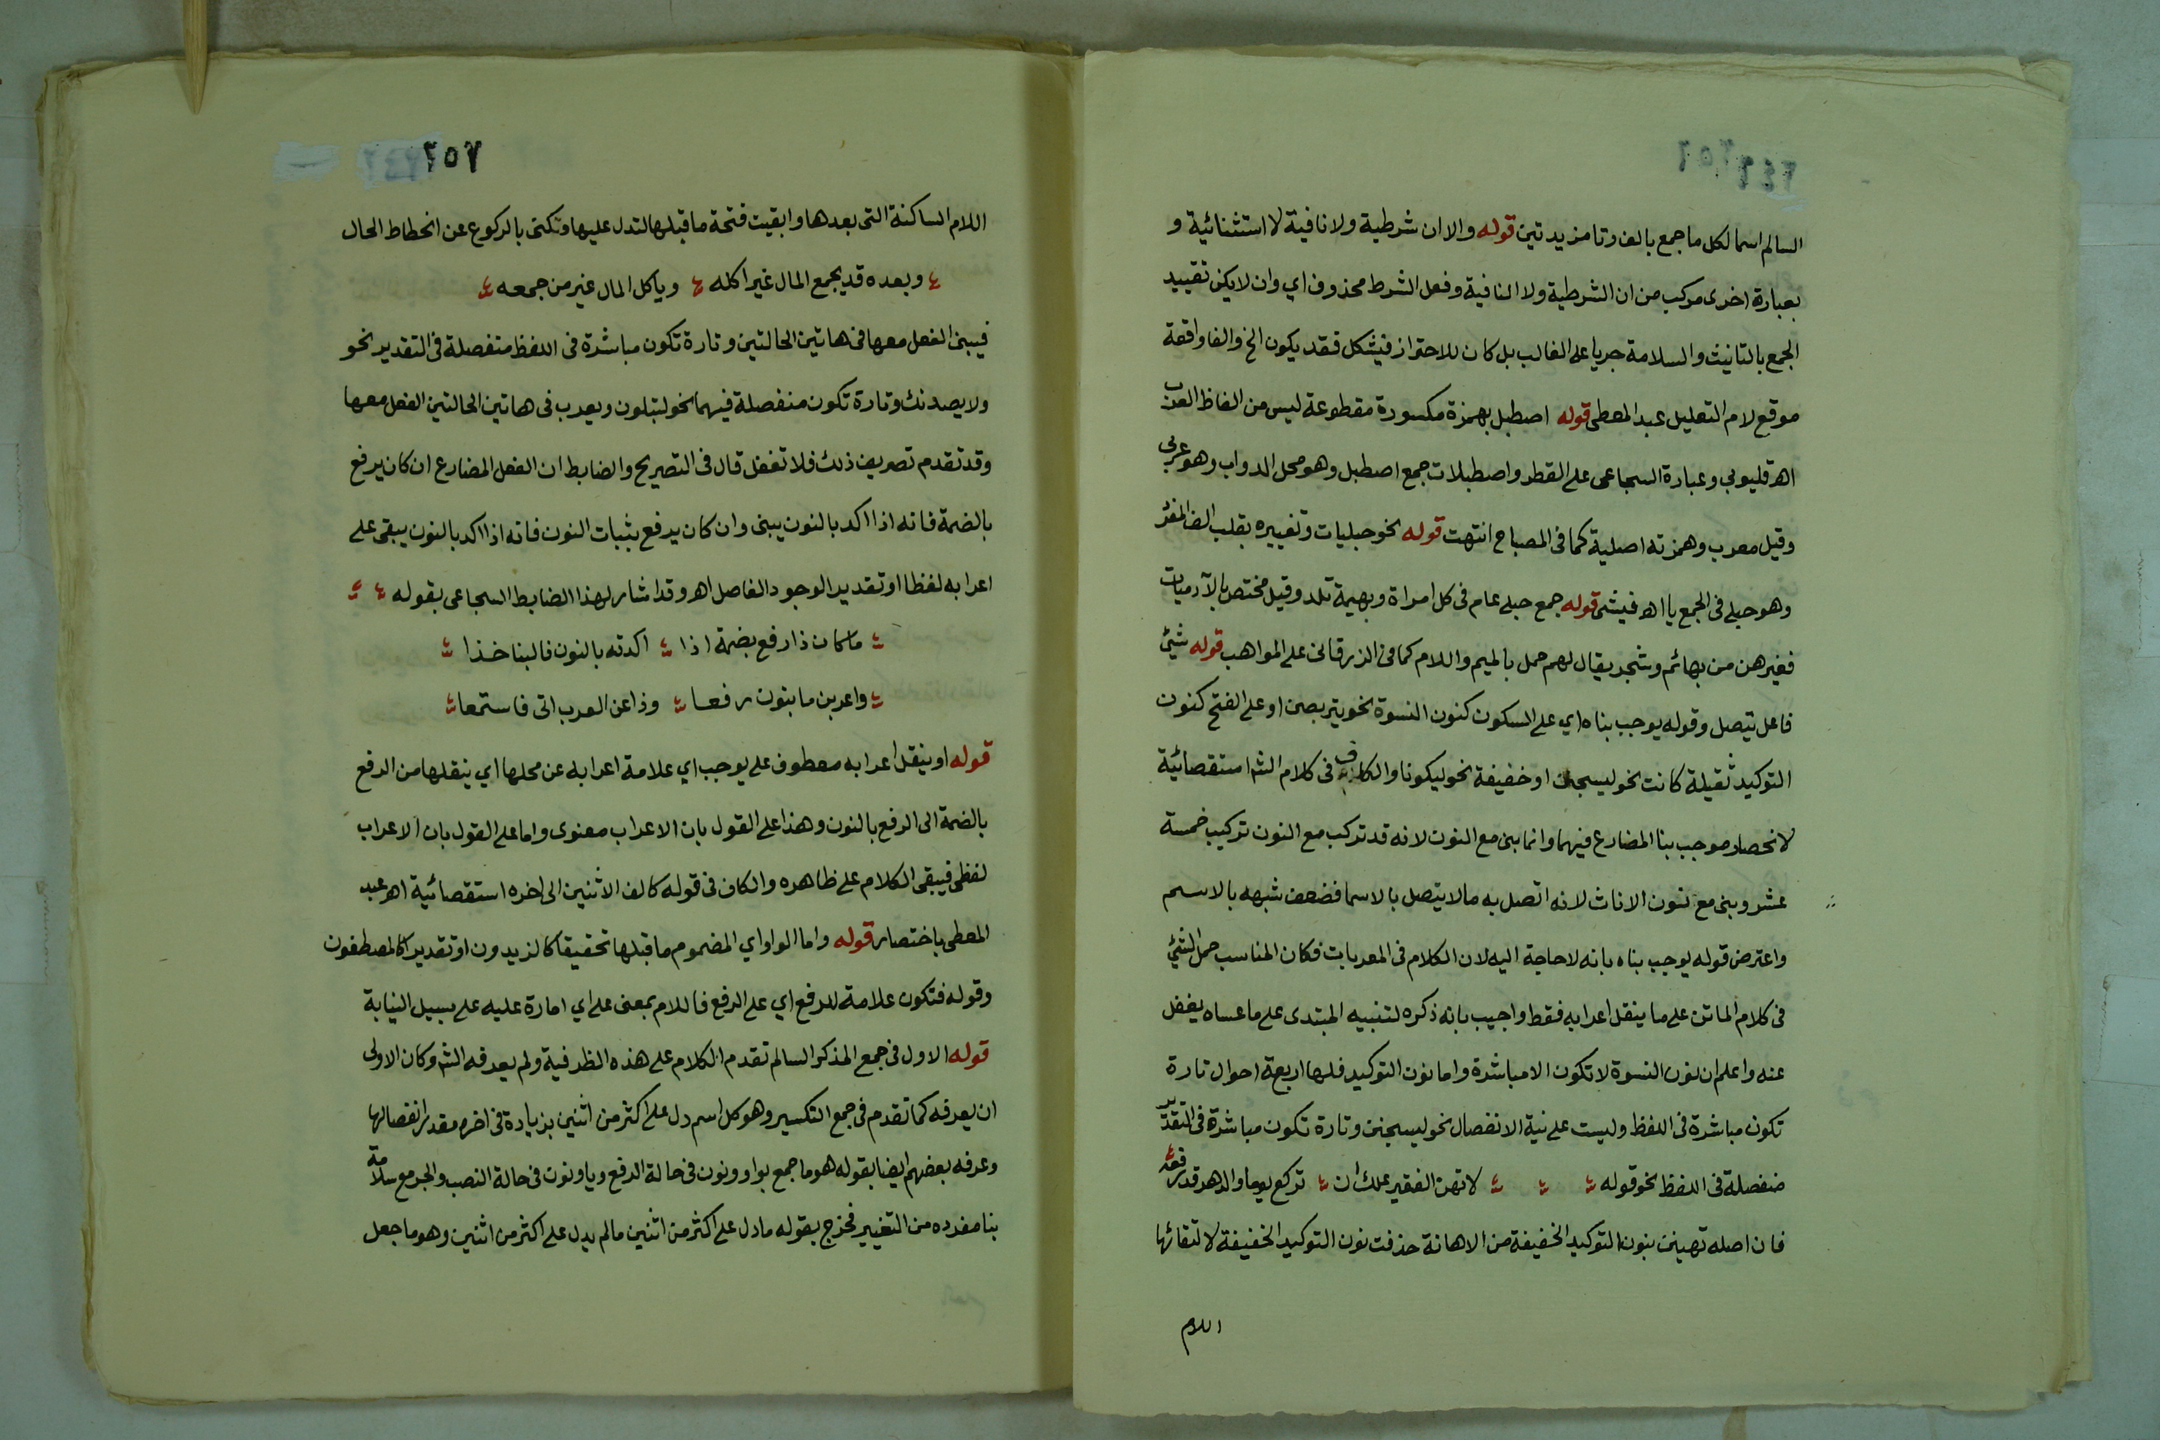 السالم اسما لكل ما جمع بالف وتا مزيدتين قوله والا ان شرطية ولا نافية لا استثنائية و
بعبارة اخرى مركب من ان الشرطية ولا النافية وفعل الشرط محذوف اي وان لا يكن تقييد
الجمع بالتانيث والسلامة جريا على الغالب بل كان للاحتراز فيشكل فقد يكون الخ والفا واقعة
موقع لام التعليل عبد المعطى قوله اصطبل بهمزة مكسورة مقطوعة ليس من الفاظ العرب
اهـ قليوبي وعبارة السجاعى على القطر واصطبلات جمع اصطبل وهو محل الدواب وهو عربي
وقيل معرب وهمزته اصلية كما فى المصباح انتهت قوله نحو حبليات وتغييره بقلب الف المفرد
وهو حبلى فى الجمع يا اهـ فيشى قوله جمع حبلى عام فى كل امراة وبهيمة تلد وقيل مختص بالآدميات
فغيرهن من بهائم وشجر يقال لهم حمل بالميم واللام كما فى الزرقانى على المواهب قوله شئ
فاعل يتصل وقوله يوجب بناه اي على السكون كنون النسوة نحو يتربصن او على الفتح كنون
التوكيد ثقيلة كانت نحو ليسجنن او خفيفة نحو ليكونا والكاف فى كلام الشم استقصائية
لانحصار موجب بنا المضارع فيهما وانما بنى مع النون لانه قد تركب مع النون تركيب خمسة
عشر وبنى مع نون الاناث لانه اتصل به ما لا يتصل بالاسما فضعف شبهه بالاسم
واعترض قوله يوجب بناه بانه لا حاجة اليه لان الكلام فى المعربات فكان المناسب حمل الشئ
فى كلام الماتن على ما ينقل اعرابه فقط واجيب بانه ذكره لتنبيه المبتدى على ما عساه يغفل
عنه واعلم ان نون النسوة لا تكون الا مباشرة واما نون التوكيد فلها اربعة احوال تارة
تكون مباشرة فى اللفظ وليست على نية الانفصال نحو ليسجنن وتارة تكون مباشرة فى التقدير
منفصلة فى اللفظ نحو قوله لا تهن الفقير علك ان تركع يوما والدهر قد رفعه
فان اصله تهينن بنون التوكيد الخفيفة من الاهانة حذفت نون التوكيد الخفيفة لالتقائها
اللام
٢٥٧
اللام الساكنة التى بعدها وابقيت فتحة ما قبلها لتدل عليها وتكنى بالركوع عن انحطاط الحال
وبعده قد يجمع المال غير اكله وياكل المال غير من جمعه
فيبنى الفعل معها فى هاتين الحالتين وتارة تكون مباشرة فى اللفظ منفصلة فى التقدير نحو
ولا يصدنك وتارة تكون منفصلة فيهما نحو لتبلون ويعرب فى هاتين الحالتين الفعل معها
وقد تقدم تصريف ذلك فلا تغفل قال فى التصريح والضابط ان الفعل المضارع ان كان يرفع
بالضمة فانه اذا اكد بالنون يبنى وان كان يرفع بثبات النون فانه اذا اكد بالنون يبقى على
اعرابه لفظا او تقديرا لوجود الفاصل اهـ وقد اشار لهذا الضابط السجاعى بقوله
ما كان ذا رفع بضمة اذا اكدته بالنون فالبنا خذا
واعربن ما بنون رفعا وذا عن العرب اتى فاستمعا
قوله او ينقل اعرابه معطوف على يوجب اي علامة اعرابه عن محلها اي ينقلها من الرفع
بالضمة الى الرفع بالنون وهذا على القول بان الاعراب معنوى واما على القول بان الاعراب
لفظى فيبقى الكلام على ظاهره والكاف فى قوله كالف الاثنين الى اخره استقصائية اهـ عبد
المعطى باختصار قوله واما الواو اي المضموم ما قبلها تحقيقا كالزيدون او تقديرا كالمصطفون
وقوله فتكون علامة للرفع اي على الرفع فاللام بمعنى على اي امارة عليه على سبيل النيابة
قوله الاول فى جمع المذكر السالم تقدم الكلام على هذه الظرفية ولم يعرفه الشم وكان الاولى
ان يعرفه كما تقدم فى جمع التكسير وهو كل اسم دل على اكثر من اثنين بزيادة فى اخره مقدر انفصالها
وعرفه بعضهم ايضا بقوله هو ما جمع بواو ونون فى حالة الرفع ويا ونون فى حالة النصب والجر مع سلامة
بنا مفرده من التغيير فخرج بقوله ما دل على اكثر من اثنين ما لم يدل على اكثر من اثنين وهو ما جعل